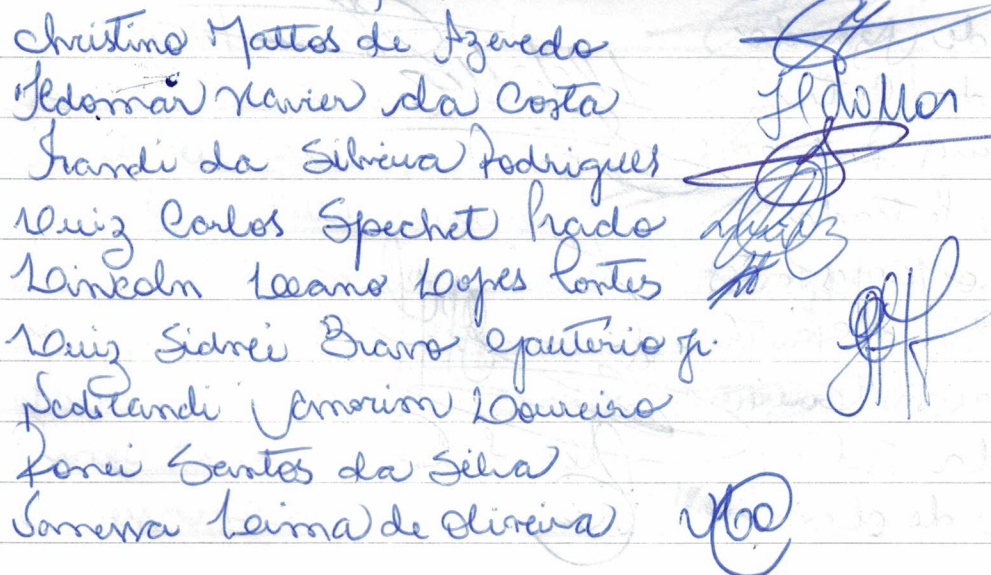 Christino Mattos de Azevedo
Ildomar Xavier da Costa Ildomar
Irandi da Silveira Rodrigues
Luiz Carlos Spechet Prado
Lincoln Lopes Pontes
Luiz Sidnei Bravo Gautério Jr.
Amorim Loureiro
Ronei Santos da Silva
Vanessa Leima de Oliveira